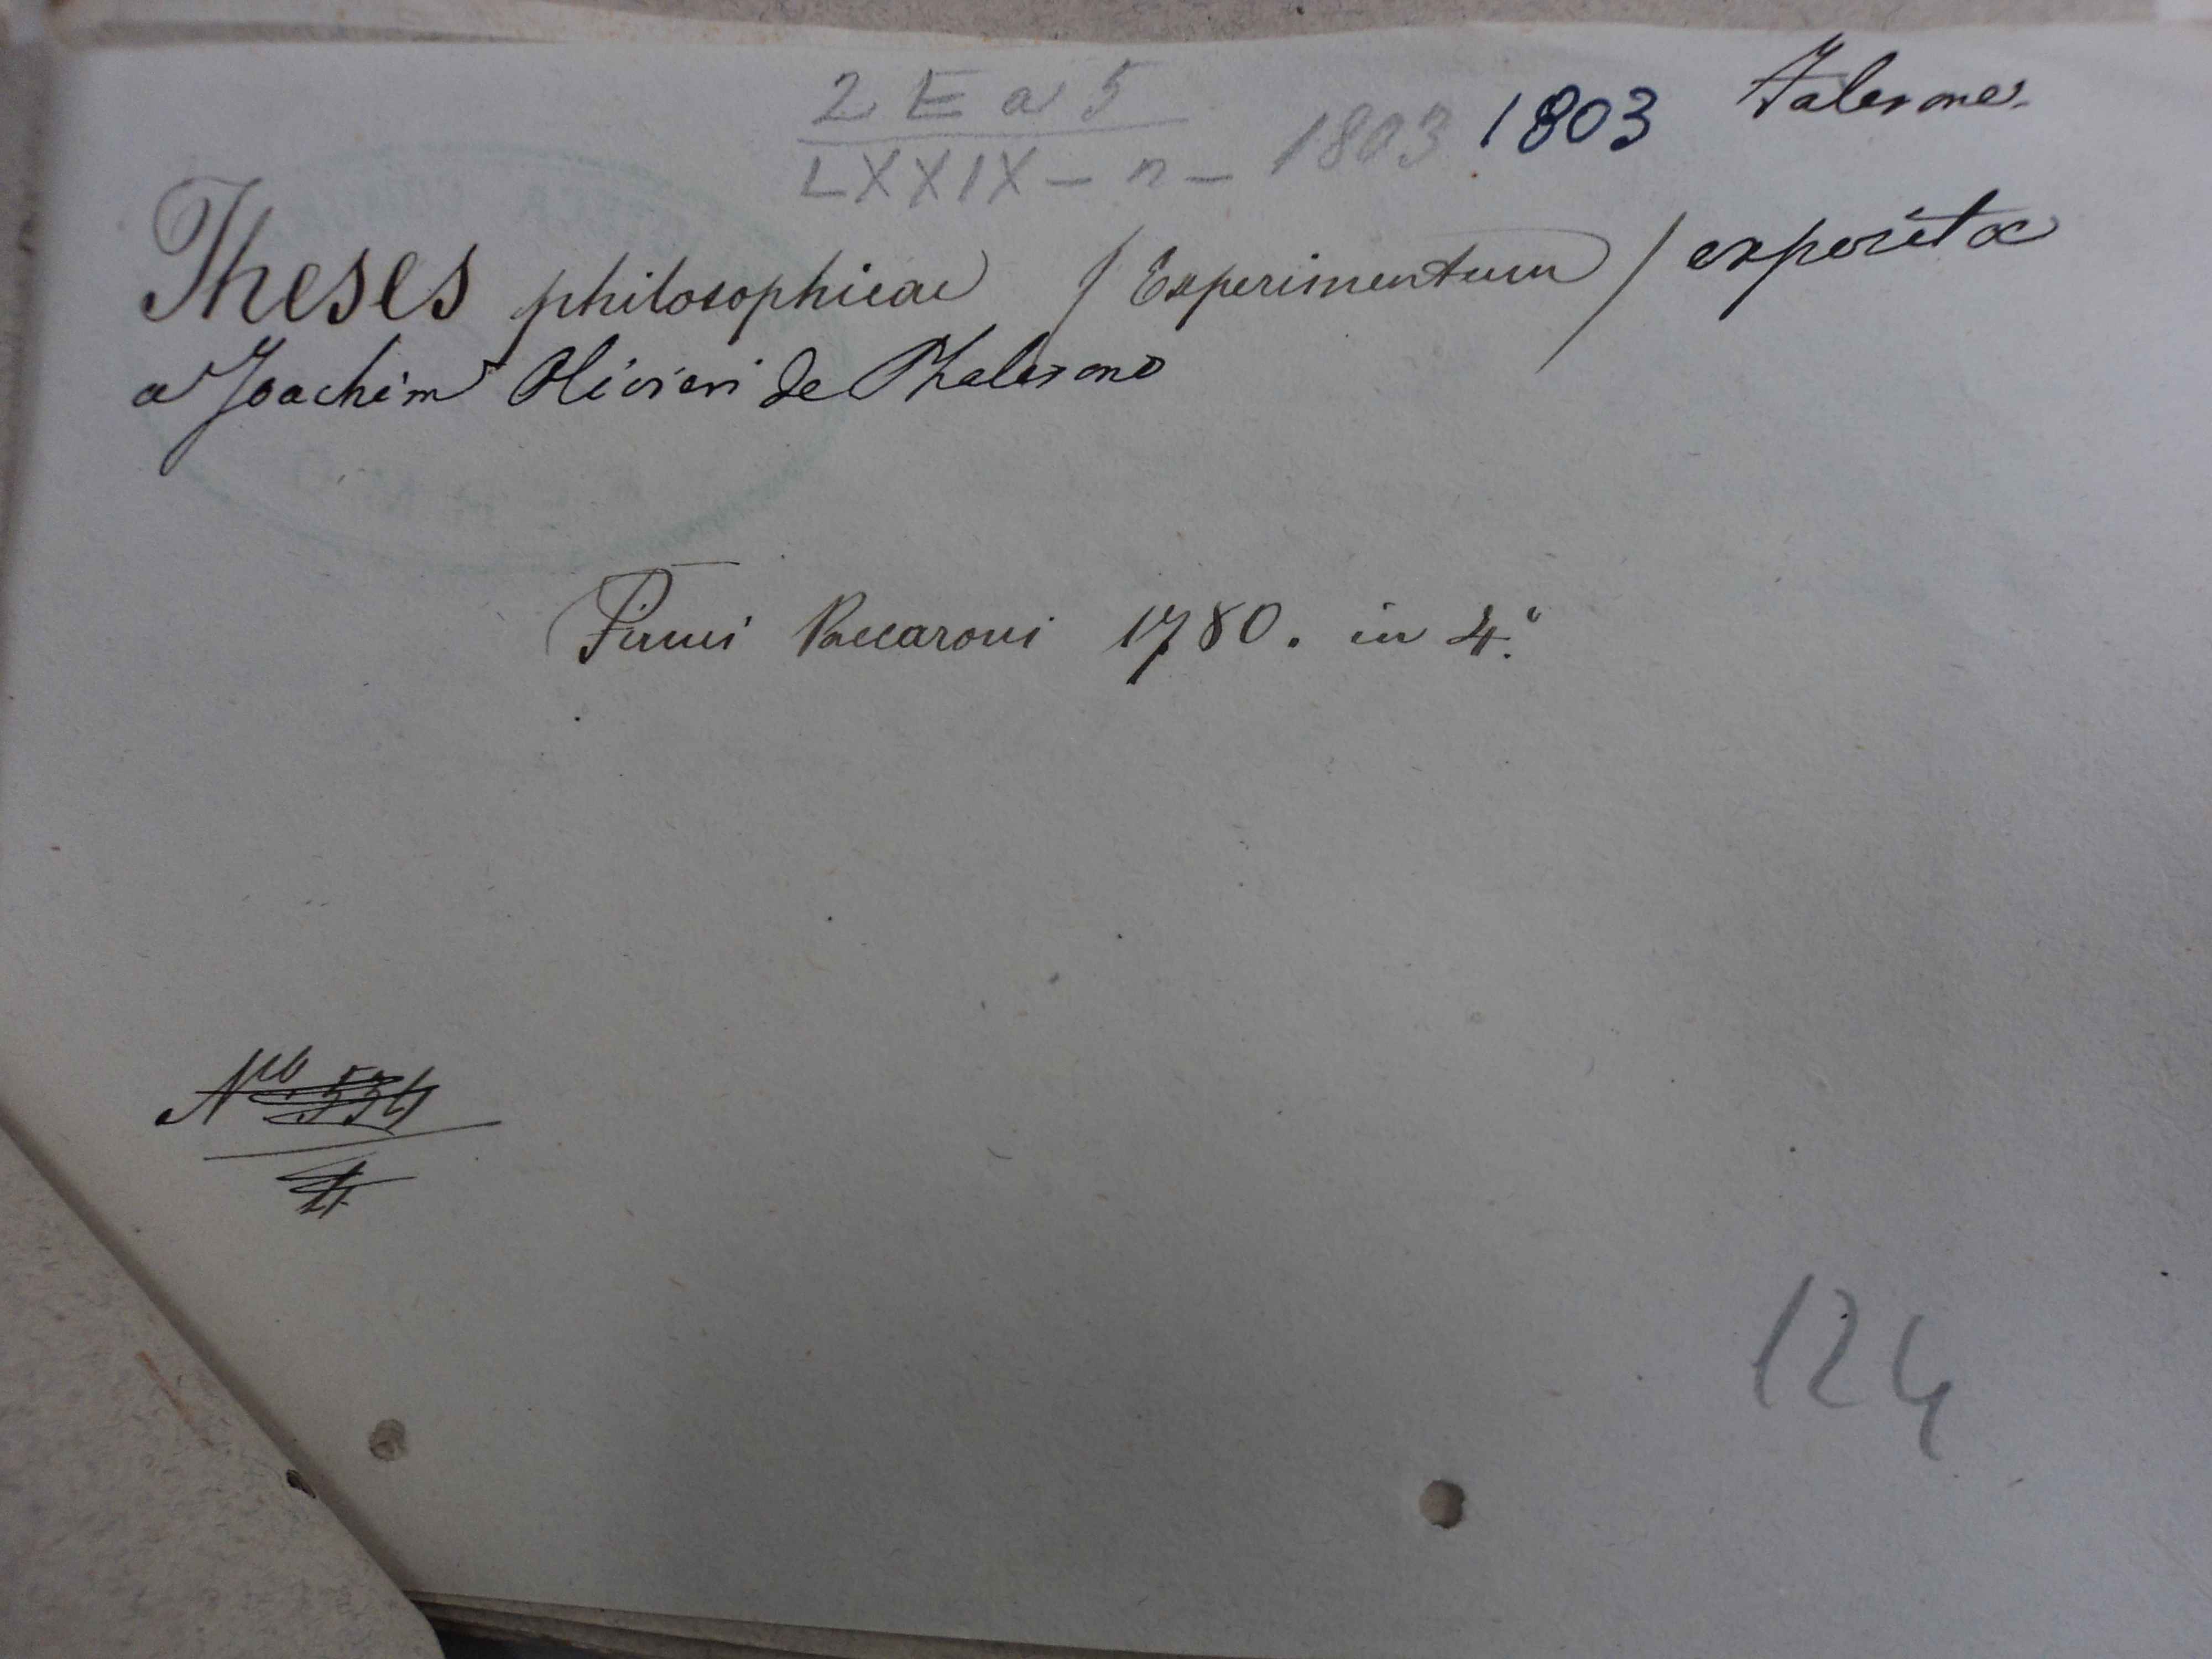 2 E a 5
LXXIX - n - 1803 1803 Falerone.
Theses philosophicae / Experimentum / exposita
a Joachim Olivieri de Phalerono
Firmi Paccaroni 1780. in 4.°
N.° 534
4
124